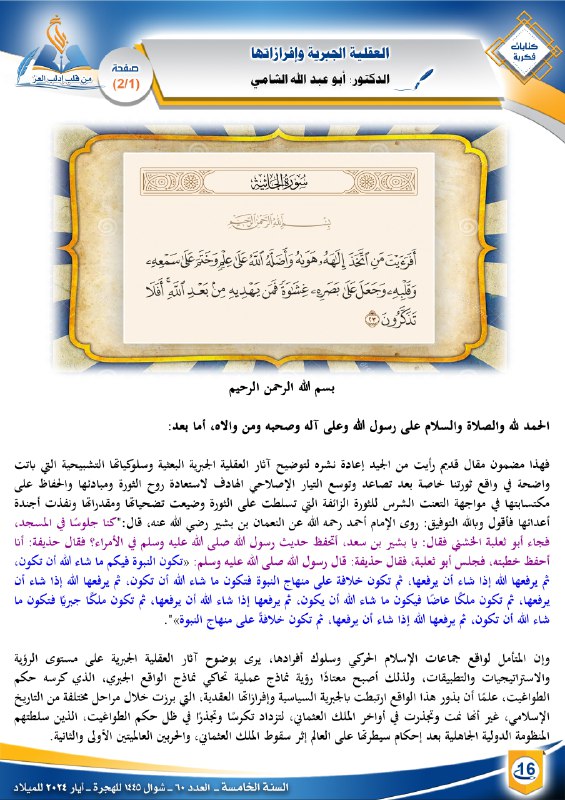 كتابات
فكرية
العقلية الجبرية وإفرازاتها
الدكتور: أبو عبد الله الشامي
صفحة
(2/1)
من قلب إدلب العز
سورة الجاثية
بسم الله الرحمن الرحيم
أَفَرَءَيْتَ مَنِ ٱتَّخَذَ إِلَٰهَهُۥ هَوَىٰهُ وَأَضَلَّهُ ٱللَّهُ عَلَىٰ عِلْمٍ وَخَتَمَ عَلَىٰ سَمْعِهِۦ
وَقَلْبِهِۦ وَجَعَلَ عَلَىٰ بَصَرِهِۦ غِشَٰوَةً فَمَن يَهْدِيهِ مِنۢ بَعْدِ ٱللَّهِ ۚ أَفَلَا
تَذَكَّرُونَ ٢٣
بسم الله الرحمن الرحيم
الحمد لله والصلاة والسلام على رسول الله وعلى آله وصحبه ومن والاه، أما بعد:
فهذا مضمون مقال قديم رأيت من الجيد إعادة نشره لتوضيح آثار العقلية الجبرية البعثية وسلوكياتها التشبيحية التي باتت
واضحة في واقع ثورتنا خاصة بعد تصاعد وتوسع التيار الإصلاحي الهادف لاستعادة روح الثورة ومبادئها والحفاظ على
مكتسباتها في مواجهة التعنت الشرس للثورة الزائفة التي تسلطت على الثورة وضيعت تضحياتها ومقدراتها ونفذت أجندة
أعدائها فأقول وبالله التوفيق: روى الإمام أحمد رحمه الله عن النعمان بن بشير رضي الله عنه، قال:"كنا جلوسًا في المسجد،
فجاء أبو ثعلبة الخشني فقال: يا بشير بن سعد، أتحفظ حديث رسول الله صلى الله عليه وسلم في الأمراء؟ فقال حذيفة: أنا
أحفظ خطبته، فجلس أبو ثعلبة، فقال حذيفة: قال رسول الله صلى الله عليه وسلم: «تكون النبوة فيكم ما شاء الله أن تكون،
ثم يرفعها الله إذا شاء أن يرفعها، ثم تكون خلافة على منهاج النبوة فتكون ما شاء الله أن تكون، ثم يرفعها الله إذا شاء أن
يرفعها، ثم تكون ملكًا عاضًا فيكون ما شاء الله أن يكون، ثم يرفعها إذا شاء الله أن يرفعها، ثم تكون ملكًا جبريًا فتكون ما
شاء الله أن تكون، ثم يرفعها الله إذا شاء أن يرفعها، ثم تكون خلافةً على منهاج النبوة»".
وإن المتأمل لواقع جماعات الإسلام الحركي وسلوك أفرادها، يرى بوضوح آثار العقلية الجبرية على مستوى الرؤية
والاستراتيجيات والتطبيقات، ولذلك أصبح معتادًا رؤية نماذج عملية تحاكي نماذج الواقع الجبري، الذي كرسه حكم
الطواغيت، علمًا أن بذور هذا الواقع ارتبطت بالجبرية السياسية وإفرازاتها العقدية، التي برزت خلال مراحل مختلفة من التاريخ
الإسلامي، غير أنها نمت وتجذرت في أواخر الملك العثماني، لتزداد تكرسًا وتجذرًا في ظل حكم الطواغيت، الذين سلطتهم
المنظومة الدولية الجاهلية بعد إحكام سيطرتها على العالم إثر سقوط الملك العثماني، والحربين العالميتين الأولى والثانية.
السنة الخامسة ـ العدد ٦٠ ـ شوال ١٤٤٥ للهجرة ـ أيار ٢٠٢٤ للميلاد
16